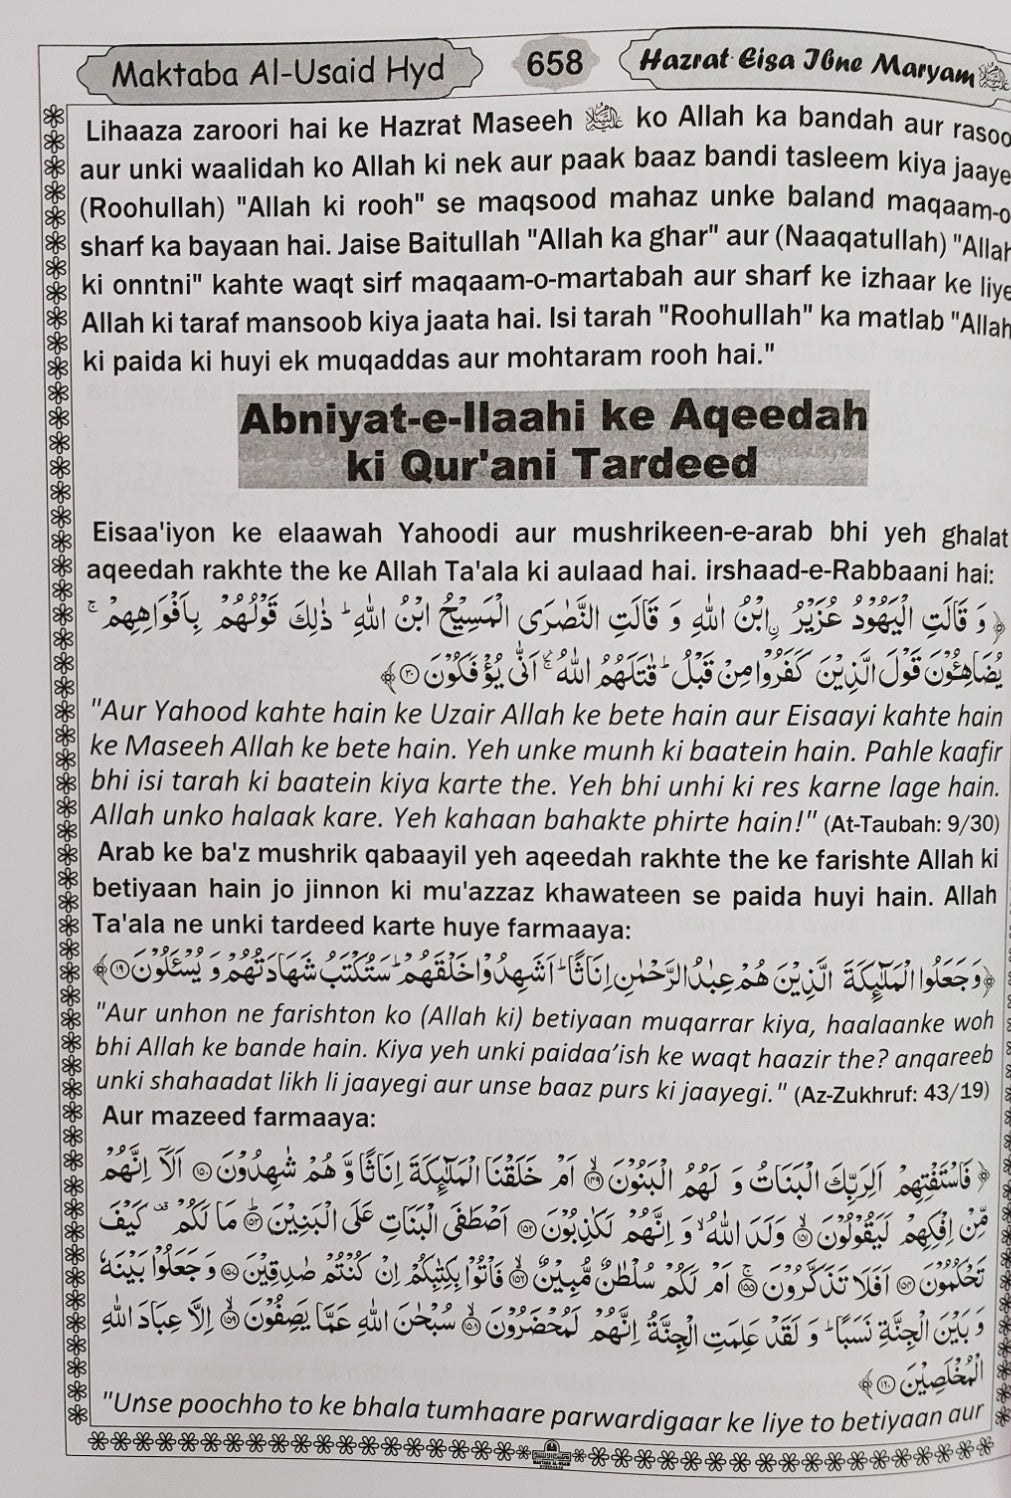 Maktaba Al-Usaid Hyd
658
Hazrat Eisa Ibne Maryam
Lihaaza zaroori hai ke Hazrat Maseeh ko Allah ka bandah aur rasoo
aur unki waalidah ko Allah ki nek aur paak baaz bandi tasleem kiya jaaye
(Roohullah) "Allah ki rooh" se maqsood mahaz unke baland maqaam-o
sharf ka bayaan hai. Jaise Baitullah "Allah ka ghar" aur (Naaqatullah) "Allah
ki onntni" kahte waqt sirf maqaam-o-martabah aur sharf ke izhaar ke liye
Allah ki taraf mansoob kiya jaata hai. Isi tarah "Roohullah" ka matlab "Allah
ki paida ki huyi ek muqaddas aur mohtaram rooh hai."
Abniyat-e-Ilaahi ke Aqeedah
ki Qur'ani Tardeed
Eisaa'iyon ke elaawah Yahoodi aur mushrikeen-e-arab bhi yeh ghalat
aqeedah rakhte the ke Allah Ta'ala ki aulaad hai. irshaad-e-Rabbaani hai:
﴿وَ قَالَتِ الْيَهُوْدُ عُزَيْرُ ۨابْنُ اللّٰهِ وَ قَالَتِ النَّصٰرَى الْمَسِيْحُ ابْنُ اللّٰهِ ؕ ذٰلِكَ قَوْلُهُمْ بِاَفْوَاهِهِمْ ۚ
يُضَاهِـُٔوْنَ قَوْلَ الَّذِيْنَ كَفَرُوْا مِنْ قَبْلُ ؕ قٰتَلَهُمُ اللّٰهُ ۚ اَنّٰى يُؤْفَكُوْنَ ۝۳۰﴾
"Aur Yahood kahte hain ke Uzair Allah ke bete hain aur Eisaayi kahte hain
ke Maseeh Allah ke bete hain. Yeh unke munh ki baatein hain. Pahle kaafir
bhi isi tarah ki baatein kiya karte the. Yeh bhi unhi ki res karne lage hain.
Allah unko halaak kare. Yeh kahaan bahakte phirte hain!" (At-Taubah: 9/30)
Arab ke ba'z mushrik qabaayil yeh aqeedah rakhte the ke farishte Allah ki
betiyaan hain jo jinnon ki mu'azzaz khawateen se paida huyi hain. Allah
Ta'ala ne unki tardeed karte huye farmaaya:
﴿وَ جَعَلُوا الْمَلٰٓىِٕكَةَ الَّذِيْنَ هُمْ عِبٰدُ الرَّحْمٰنِ اِنَاثًا ؕ اَشَهِدُوْا خَلْقَهُمْ ؕ سَتُكْتَبُ شَهَادَتُهُمْ وَ يُسْـَٔلُوْنَ ۝۱۹﴾
"Aur unhon ne farishton ko (Allah ki) betiyaan muqarrar kiya, haalaanke woh
bhi Allah ke bande hain. Kiya yeh unki paidaa’ish ke waqt haazir the? anqareeb
unki shahaadat likh li jaayegi aur unse baaz purs ki jaayegi." (Az-Zukhruf: 43/19)
Aur mazeed farmaaya:
﴿فَاسْتَفْتِهِمْ اَلِرَبِّكَ الْبَنَاتُ وَ لَهُمُ الْبَنُوْنَ ۝۱۴۹ اَمْ خَلَقْنَا الْمَلٰٓىِٕكَةَ اِنَاثًا وَّ هُمْ شٰهِدُوْنَ ۝۱۵۰ اَلَاۤ اِنَّهُمْ
مِّنْ اِفْكِهِمْ لَيَقُوْلُوْنَ ۝۱۵۱ وَلَدَ اللّٰهُ ۙ وَ اِنَّهُمْ لَكٰذِبُوْنَ ۝۱۵۲ اَصْطَفَى الْبَنَاتِ عَلَى الْبَنِيْنَ ۝۱۵۳ مَا لَكُمْ ۫ كَيْفَ
تَحْكُمُوْنَ ۝۱۵۴ اَفَلَا تَذَكَّرُوْنَ ۝۱۵۵ اَمْ لَكُمْ سُلْطٰنٌ مُّبِيْنٌ ۝۱۵۶ فَاْتُوْا بِكِتٰبِكُمْ اِنْ كُنْتُمْ صٰدِقِيْنَ ۝۱۵۷ وَ جَعَلُوْا بَيْنَهٗ
وَ بَيْنَ الْجِنَّةِ نَسَبًا ؕ وَ لَقَدْ عَلِمَتِ الْجِنَّةُ اِنَّهُمْ لَمُحْضَرُوْنَ ۝۱۵۸ سُبْحٰنَ اللّٰهِ عَمَّا يَصِفُوْنَ ۝۱۵۹ اِلَّا عِبَادَ اللّٰهِ
الْمُخْلَصِيْنَ ۝۱۶۰﴾
"Unse poochho to ke bhala tumhaare parwardigaar ke liye to betiyaan aur